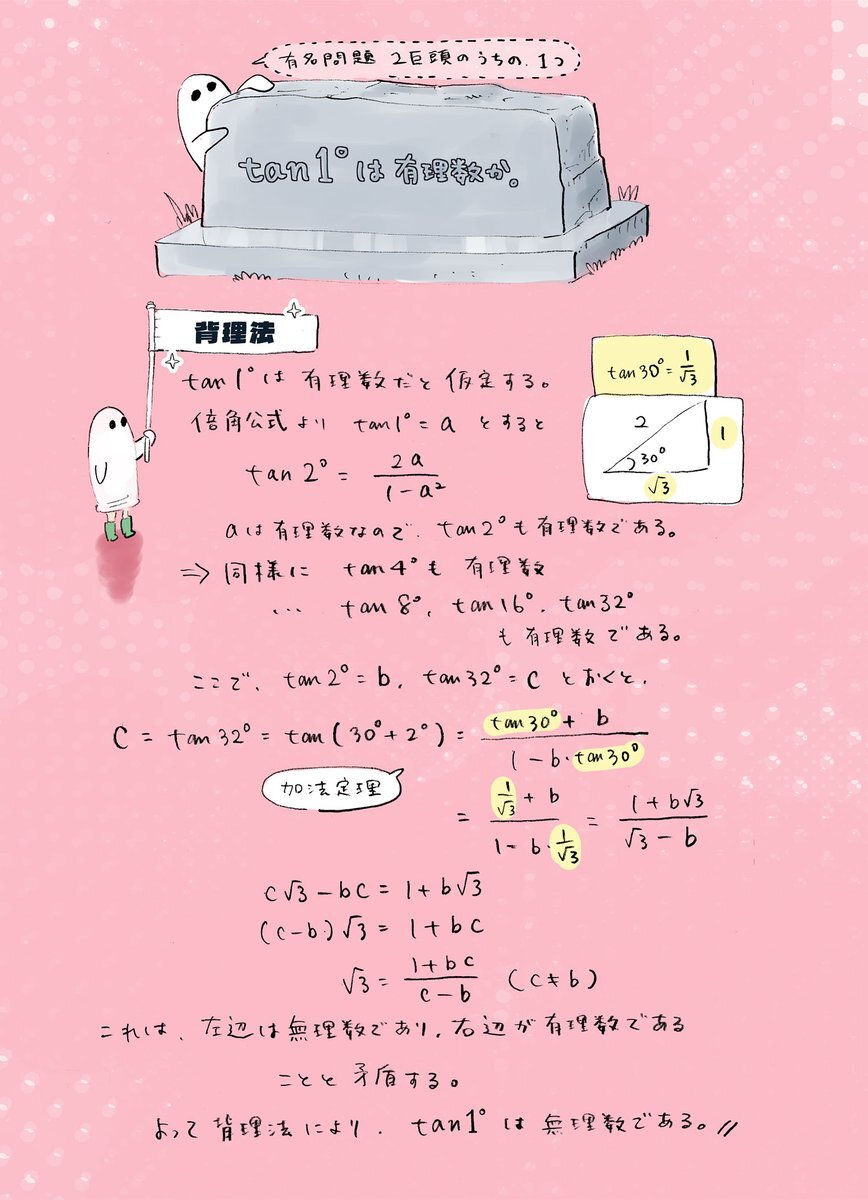 有名問題 2巨頭のうちの、1つ
tan1°は有理数か。
背理法
tan1°は 有理数だと 仮定する。
倍角公式より tan1°=a とすると
tan2°= 2a/(1-a²)
aは有理数なので、tan2°も有理数である。
⇒ 同様に tan4°も 有理数
… tan8°, tan16°, tan32°
も有理数である。
tan30°=1/√3
2
1
30°
√3
ここで、tan2°=b, tan32°=c とおくと、
C = tan32° = tan(30°+2°) = (tan30°+b)/(1-b・tan30°)
加法定理
= (1/√3+b)/(1-b・1/√3) = (1+b√3)/(√3-b)
c√3-bc = 1+b√3
(c-b)√3 = 1+bc
√3 = (1+bc)/(c-b) (c≠b)
これは、左辺は無理数であり、右辺が有理数である
ことと矛盾する。
よって背理法により、tan1°は無理数である。//